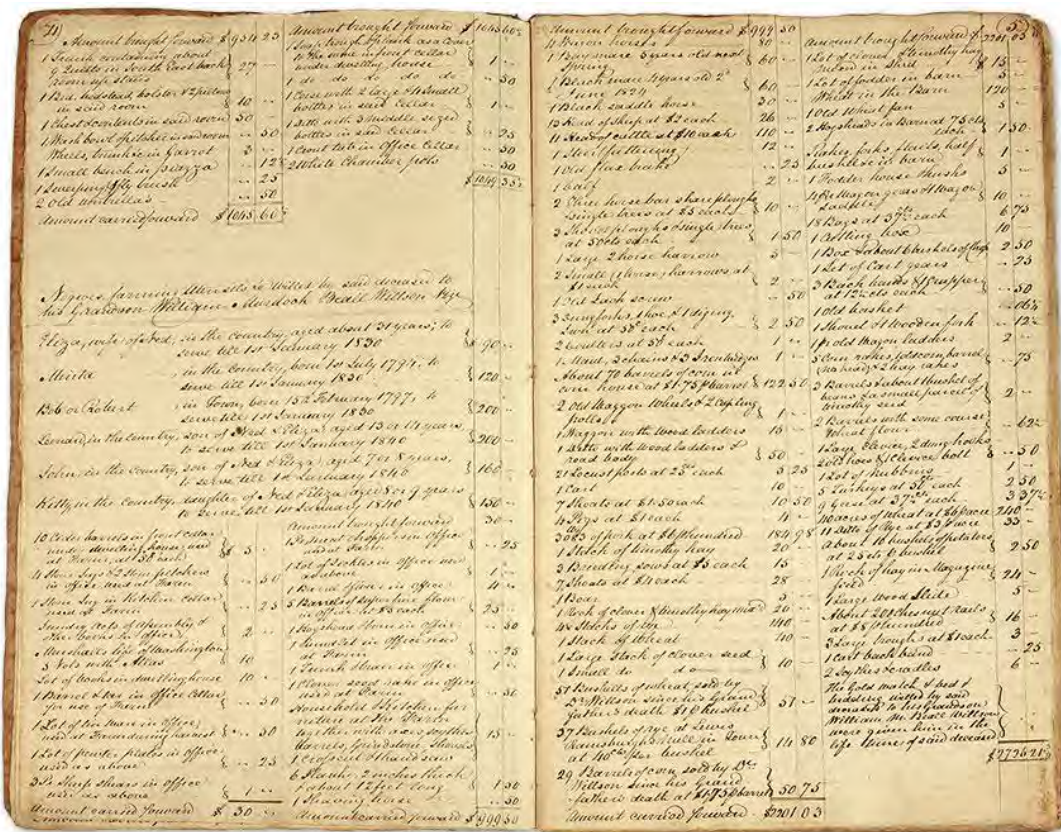 71
Amount brought forward $ 954 23
1 Trunk containing about
9 Quilts in North East back room up stairs 27 --
1 Bed, bedstead, bolster & 2 pillows
in said room 10 --
1 Chest & contents in said room 50 --
1 Wash bowl & pitcher in said room -- 50
Wheels, trunks in Garret 3 --
1 Small bench in piazza -- 12½
1 Sweeping & fly brush -- 25
2 Old umbrellas -- 50
Amount carried forward $ 1045 60½
Amount brought forward $ 1045 60½
1 Soap trough & plank as a cover
to the same in front cellar
under dwelling house 1 --
1 do do do do do -- 50
1 Case with 2 large & 4 small
bottles in said Cellar 1 --
1 Ditto with 3 middle sized
bottles in said Cellar -- 25
1 Crout tub in office Cellar -- 50
2 White Chamber pots -- 50
$ 1049 35½
Negroes, farming Utensils &c willed by said deceased to
his Grandson William Murdoch Beall Willson
Eliza, wife of Ned, in the country, aged about 31 years; to
serve till 1st January 1830 $ 90 --
in the Country, born 1st July 1794, to
serve till 1st January 1830 120 --
Bob or Robert in Town, born 15th February 1797, to
serve till 1st January 1830 200 --
in the country, son of Ned & Eliza, aged 13 or 14 years,
to serve till 1st January 1840 200 --
John, in the Country, son of Ned & Eliza, aged 7 or 8 years,
to serve till 1st January 1840 160 --
Kitty in the country, daughter of Ned & Eliza, aged 8 or 9 years
to serve till 1st January 1840 130 --
10 Cider barrels in front cellar
under dwelling house, and
at Farm, at 50 each $ 5 --
4 Stone Jugs & 2 Stone pitchers
in office and at Farm -- 50
1 Stone Jug in Kitchen Cellar
used at Farm -- 25
Sundry Acts of Assembly &
other books in office 2 --
Marshall's life of Washington
5 Vols with Atlas 10
Lot of books in dwelling house 10 --
1 Barrel & tar in Office Cellar
for use of Farm -- 50
1 Lot of tin ware in office,
used at Farm during harvest -- 50
1 Lot of pewter plates in office
used as above -- 25
3 Pr Sheep shears in office
used as above 1 --
Amount carried forward $ 30 --
Amount brought forward 30 --
in office
and at Farm -- 25
1 Lot of Sickles in office used
as above 1 --
in office 4 --
5 Barrels of superfine flour
in office at $5 each 25
1 Hogshead in office -- 50
in office used
at Farm
in office 1 --
1 Clover seed rake in office
used at Farm -- 50
Household & Kitchen fur-
niture at the Farm
together with axes scythes
barrels, Grindstone, Shovels
1 crosscut & hand saw 15 --
6 Plank, 2 inches thick
& about 12 feet long 1 50
1 Shaving horse -- 50
Amount carried forward $ 999 50
5
Amount brought forward $ 999 50
4 horses 80 --
1 Bay mare 5 years old next
Spring 60 --
1 Black mare 4 years old 2d
June 1824 60 --
1 Black saddle horse 30 --
13 Head of Sheep at $2 each 26 --
11 Head of cattle at $10 each 110 --
1 Steer (fattening) 12 --
1 Old flax brake -- 25
1 Calf 2 --
2 Three horse bar share ploughs
& single trees at $5 each 10 --
3 Shovel ploughs & single trees
at 50 cts each 1 50
1 Large 2 horse harrow 5 --
2 Small (1 horse) harrows at
$1 each 2 --
1 Old -- 50
3 dung forks, 1 hoe & 1 digging
at 50c each 2 50
2 Coulters at 50c each 1 --
1 Maul, 3 chains 1 --
About 70 barrels of corn in
corn house at $1.75 p barrel 122 50
2 Old Waggon Wheels & 2 Coupling
poles 1 --
1 Waggon with Wood ladders 15 --
1 Ditto with Wood ladders &
road body 50 --
21 Locust posts at 25c each 5 25
1 Cart 10 --
7 Shoats at $1.50 each 10 50
4 Pigs at $1 each 4 --
of pork at $6 p hundred 184 98
1 Stack of timothy hay 20 --
3 Breeding sows at $5 each 15
7 Shoats at $4 each 28
1 Boar 5 --
1 Rick of clover & timothy hay mixed 20 --
4 Stacks of rye 140 --
1 Stack of Wheat 40 --
1 Large Stack of clover seed
1 Small do do 10 --
57 Bushels of wheat, sold by
Dr. Willson since his Grand
father's death at $1 p bushel 57 --
37 Bushels of rye at Lewis
Ramsburgh's Mill in Town
at 40c per bushel 14 80
29 Barrels of corn, sold by Dr.
Willson since his Grand
father's death at $1.75 p barrel 50 75
Amount carried forward $2201 03
Amount brought forward $ 2201 03
1 Lot of clover & timothy hay
in Shed $ 15 --
1 Lot of fodder in barn 5 --
Wheat in the Barn 120 --
1 Old Wheat fan 5 --
2 Hogsheads in Barn at 75 cts
each 1 50
Rakes, forks, flails, half
bushel &c in barn 1 --
1 Fodder house & husks 5 --
Waggon gears & 1 Waggon
Saddle 10 --
18 Bags at 37½ each 6 75
1 Cutting box 10 --
1 Box & about 6 bushels of 2 50
1 Lot of Cart gears -- 25
3 Back bands & 1 Crupper
at 12½ cts each -- 50
1 Old basket -- 06¼
1 Shovel & 1 wooden fork -- 12½
1 pr old Wagon ladders 2 --
5 Corn rakes, lot of corn, barrel
(no head) & 2 hay rakes -- 75
3 Barrels & about 1 bushel of
beans & a small parcel of
timothy seed 2 --
2 Barrels with some coarse
Wheat flour -- 62½
1 Large Clevice, 2 dung hooks
2 old hoes & Clevice bolt -- 50
1 Lot of nubbins 1 --
5 Turkeys at 50c each 2 50
9 Geese at 37½ each 3 37½
40 acres of wheat at $6 p acre 240 --
11 Ditto of Rye at $3 p acre 33 --
About 10 bushels of potatoes
at 25 cts p bushel 2 50
1 Rick of hay in Magazine
field 24 --
1 Large Wood Slide 5 --
About 200 Chesnut rails
at $8 p hundred 16 --
3 Large troughs at $1 each 3 --
1 Cart back band -- 25
2 Scythes & cradles 6 --
The Gold watch & bed &
bedding willed by said
deceased to his Grandson
William M. Beall Willson
were given him in the
life time of said deceased
$2726 21¼